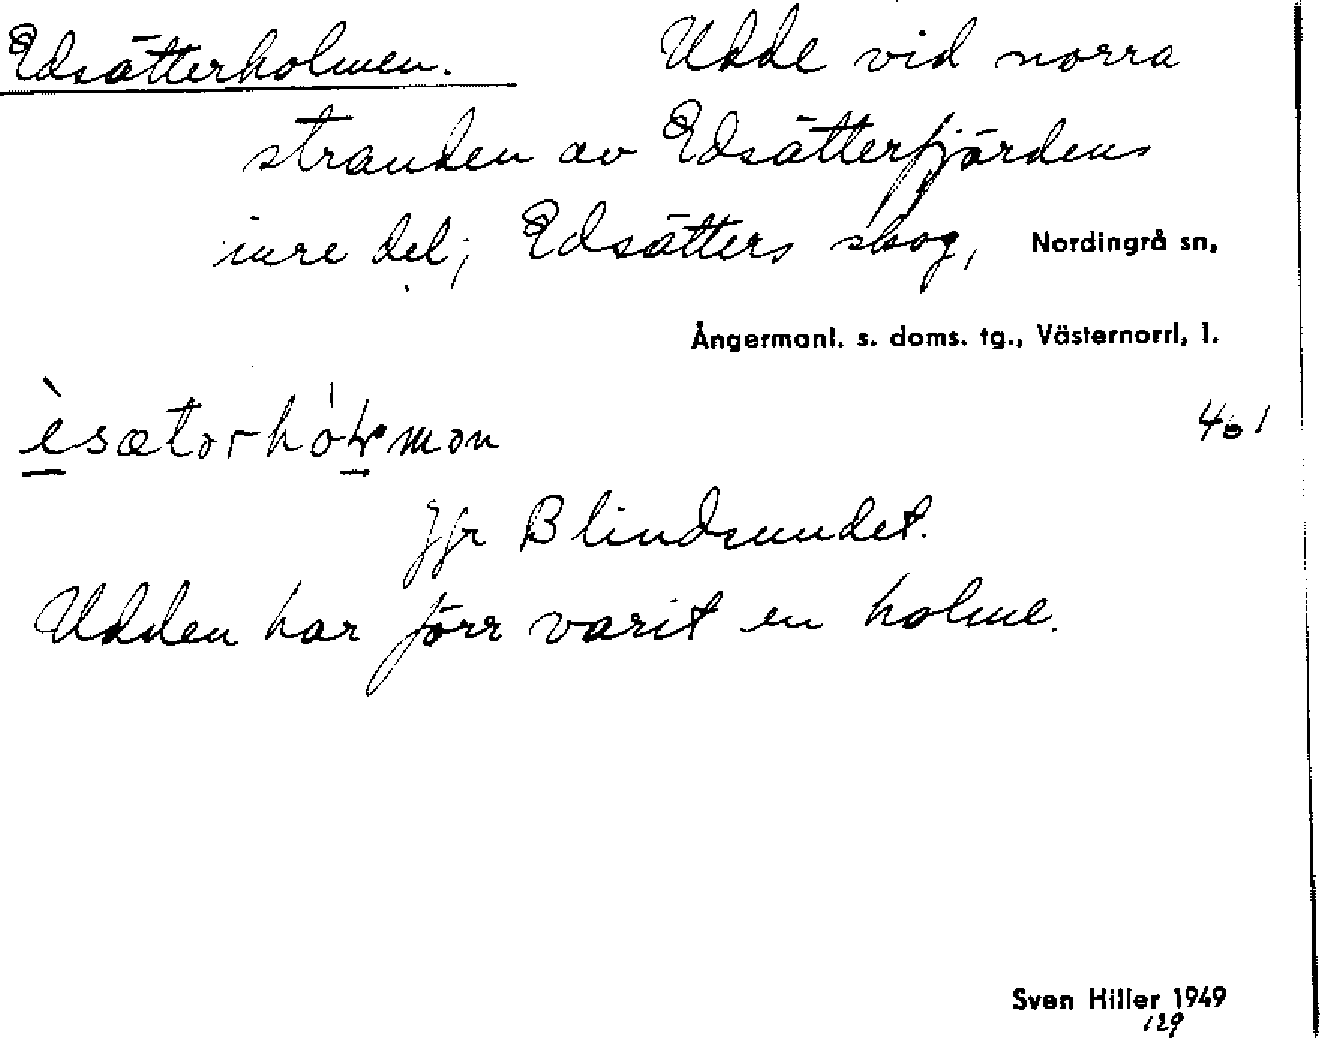 Edsätterholmen. Udde vid norra
stranden av Edsätterfjärdens
inre del; Edsätters skog, Nordingrå sn,
Ångermanl. s. doms. tg., Västernorrl, l.
461
Jfr Blindsundet.
Udden har förr varit en holme.
Sven Hiller 1949
129